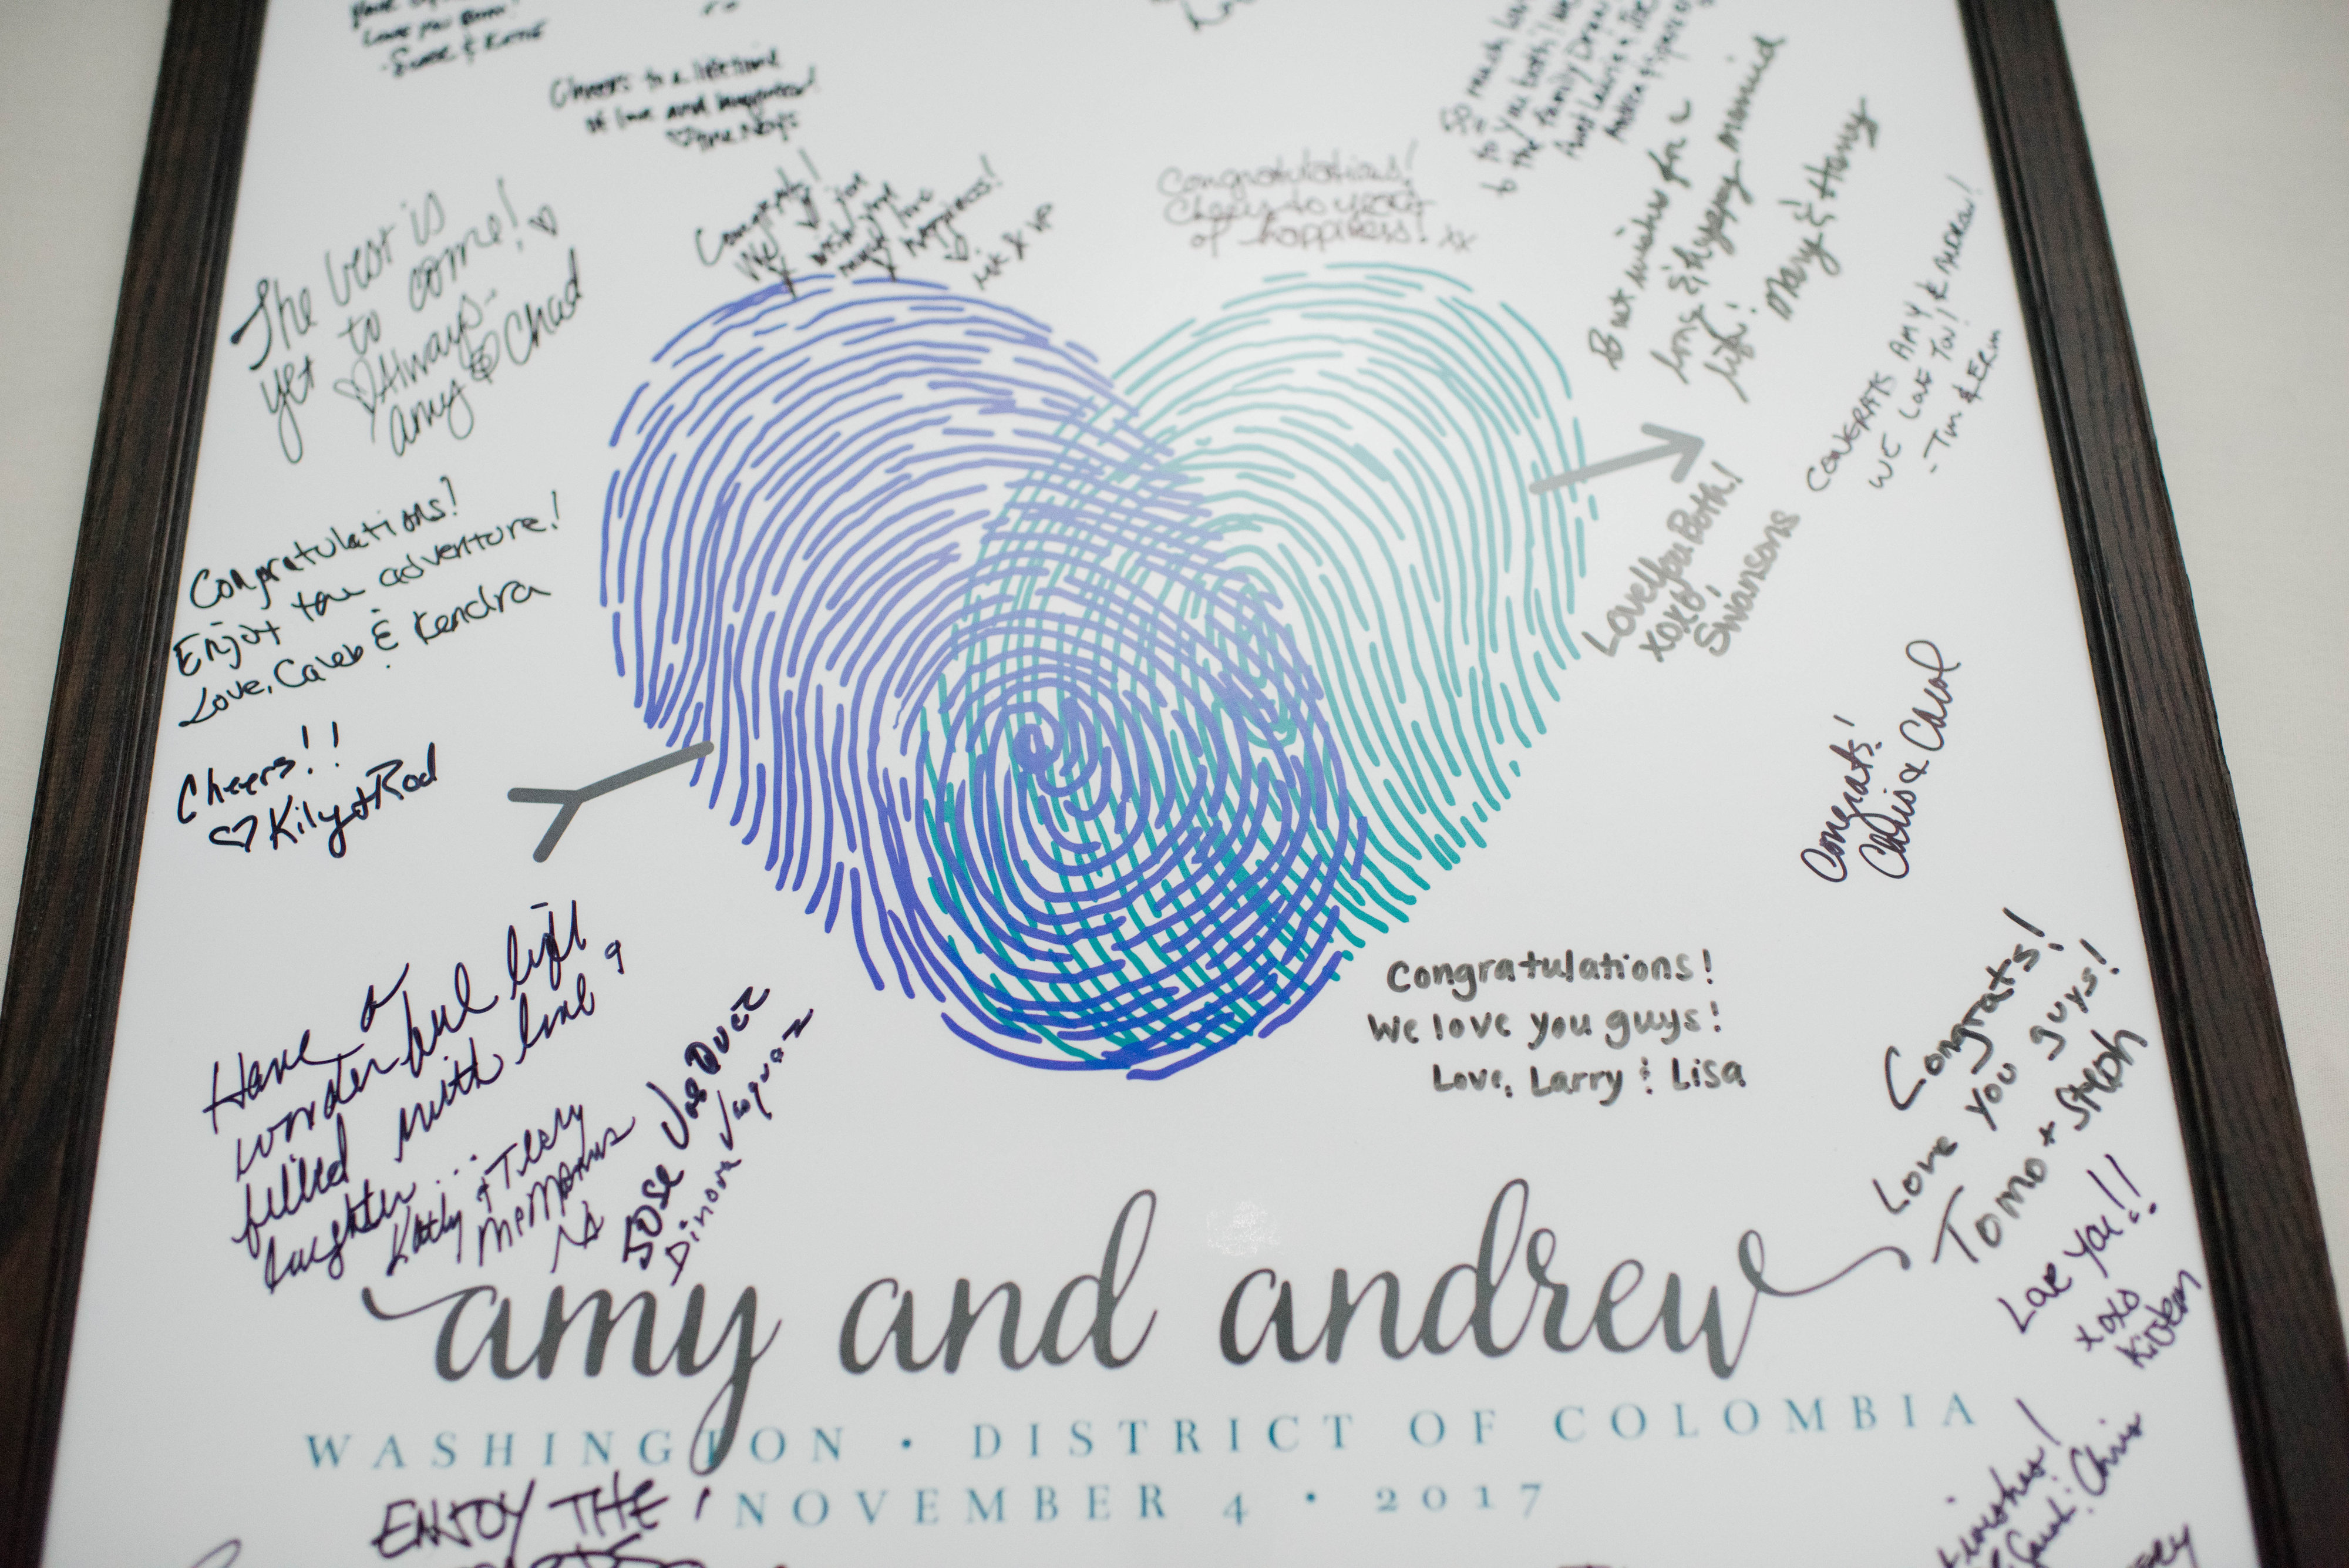 Love you
Cheers to a lifetime
of love and laughter!
Congrats!
We
wish you
much love
happiness!
Congratulations!
Cheers to years
of happiness! xx
So much love
to you both!
the family
Best wishes for a
long & happy married
life!
Mary & Harry
The best is
yet to come!
Always-
Amy & Chad
CONGRATS AMY & ANDREW!
WE LOVE YOU!
- TIM & ERIN
Love You Both!
xoxo,
Swansons
Congratulations!
Enjoy the adventure!
Love, Caleb & Kendra
Cheers!!
Kily + Rod
Congrats!
Chris & Carol
Have a
wonderful life
filled with love,
laughter...
Kathy + Terry
McManus
JOSE VASQUEZ
Dinora Vasquez
Congratulations!
We love you guys!
Love, Larry & Lisa
Congrats!
Love you guys!
Tomo + Steph
Love you!!
xoxo
amy and andrew
WASHINGTON • DISTRICT OF COLOMBIA
NOVEMBER 4 • 2017
ENJOY THE
Chris